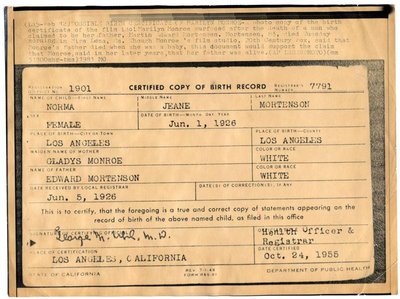 BIRTH CERTIFICATE
MONROE-
Photo copy of the birth
certificate of the film
Marilyn Monroe surfaced after the death of a man who
to be her father; Martin Edward Mortensen, 83, died Sunday
Monroe's film studio, 20th Century Fox, said that
Monroe's father died when she was a baby, this document would support the claim
that Monroe said in later years, that her father was alive. (AP LASERPHOTO)
1981
REGISTRATION
1901
CERTIFIED COPY OF BIRTH RECORD
REGISTRAR'S
7791
NAME OF CHILD—FIRST NAME
MIDDLE NAME
LAST NAME
NORMA
JEANE
MORTENSON
SEX
DATE OF BIRTH—MONTH DAY YEAR
FEMALE
Jun. 1, 1926
PLACE OF BIRTH—CITY OR TOWN
PLACE OF BIRTH—COUNTY
LOS ANGELES
LOS ANGELES
MAIDEN NAME OF MOTHER
COLOR OR RACE
GLADYS MONROE
WHITE
NAME OF FATHER
COLOR OR RACE
EDWARD MORTENSON
WHITE
DATE RECEIVED BY LOCAL REGISTRAR
DATE(S) OF CORRECTION(S), If Any
Jun. 5, 1926
This is to certify, that the foregoing is a true and correct copy of statements appearing on
the record of birth of the above named child, as filed in this office
SIGNATURE OF
George M. Uhl, M.D.
Health Officer &
Registrar
PLACE OF CERTIFICATION
DATE CERTIFIED
LOS ANGELES, CALIFORNIA
Oct. 24, 1955
STATE OF CALIFORNIA
DEPARTMENT OF PUBLIC HEALTH